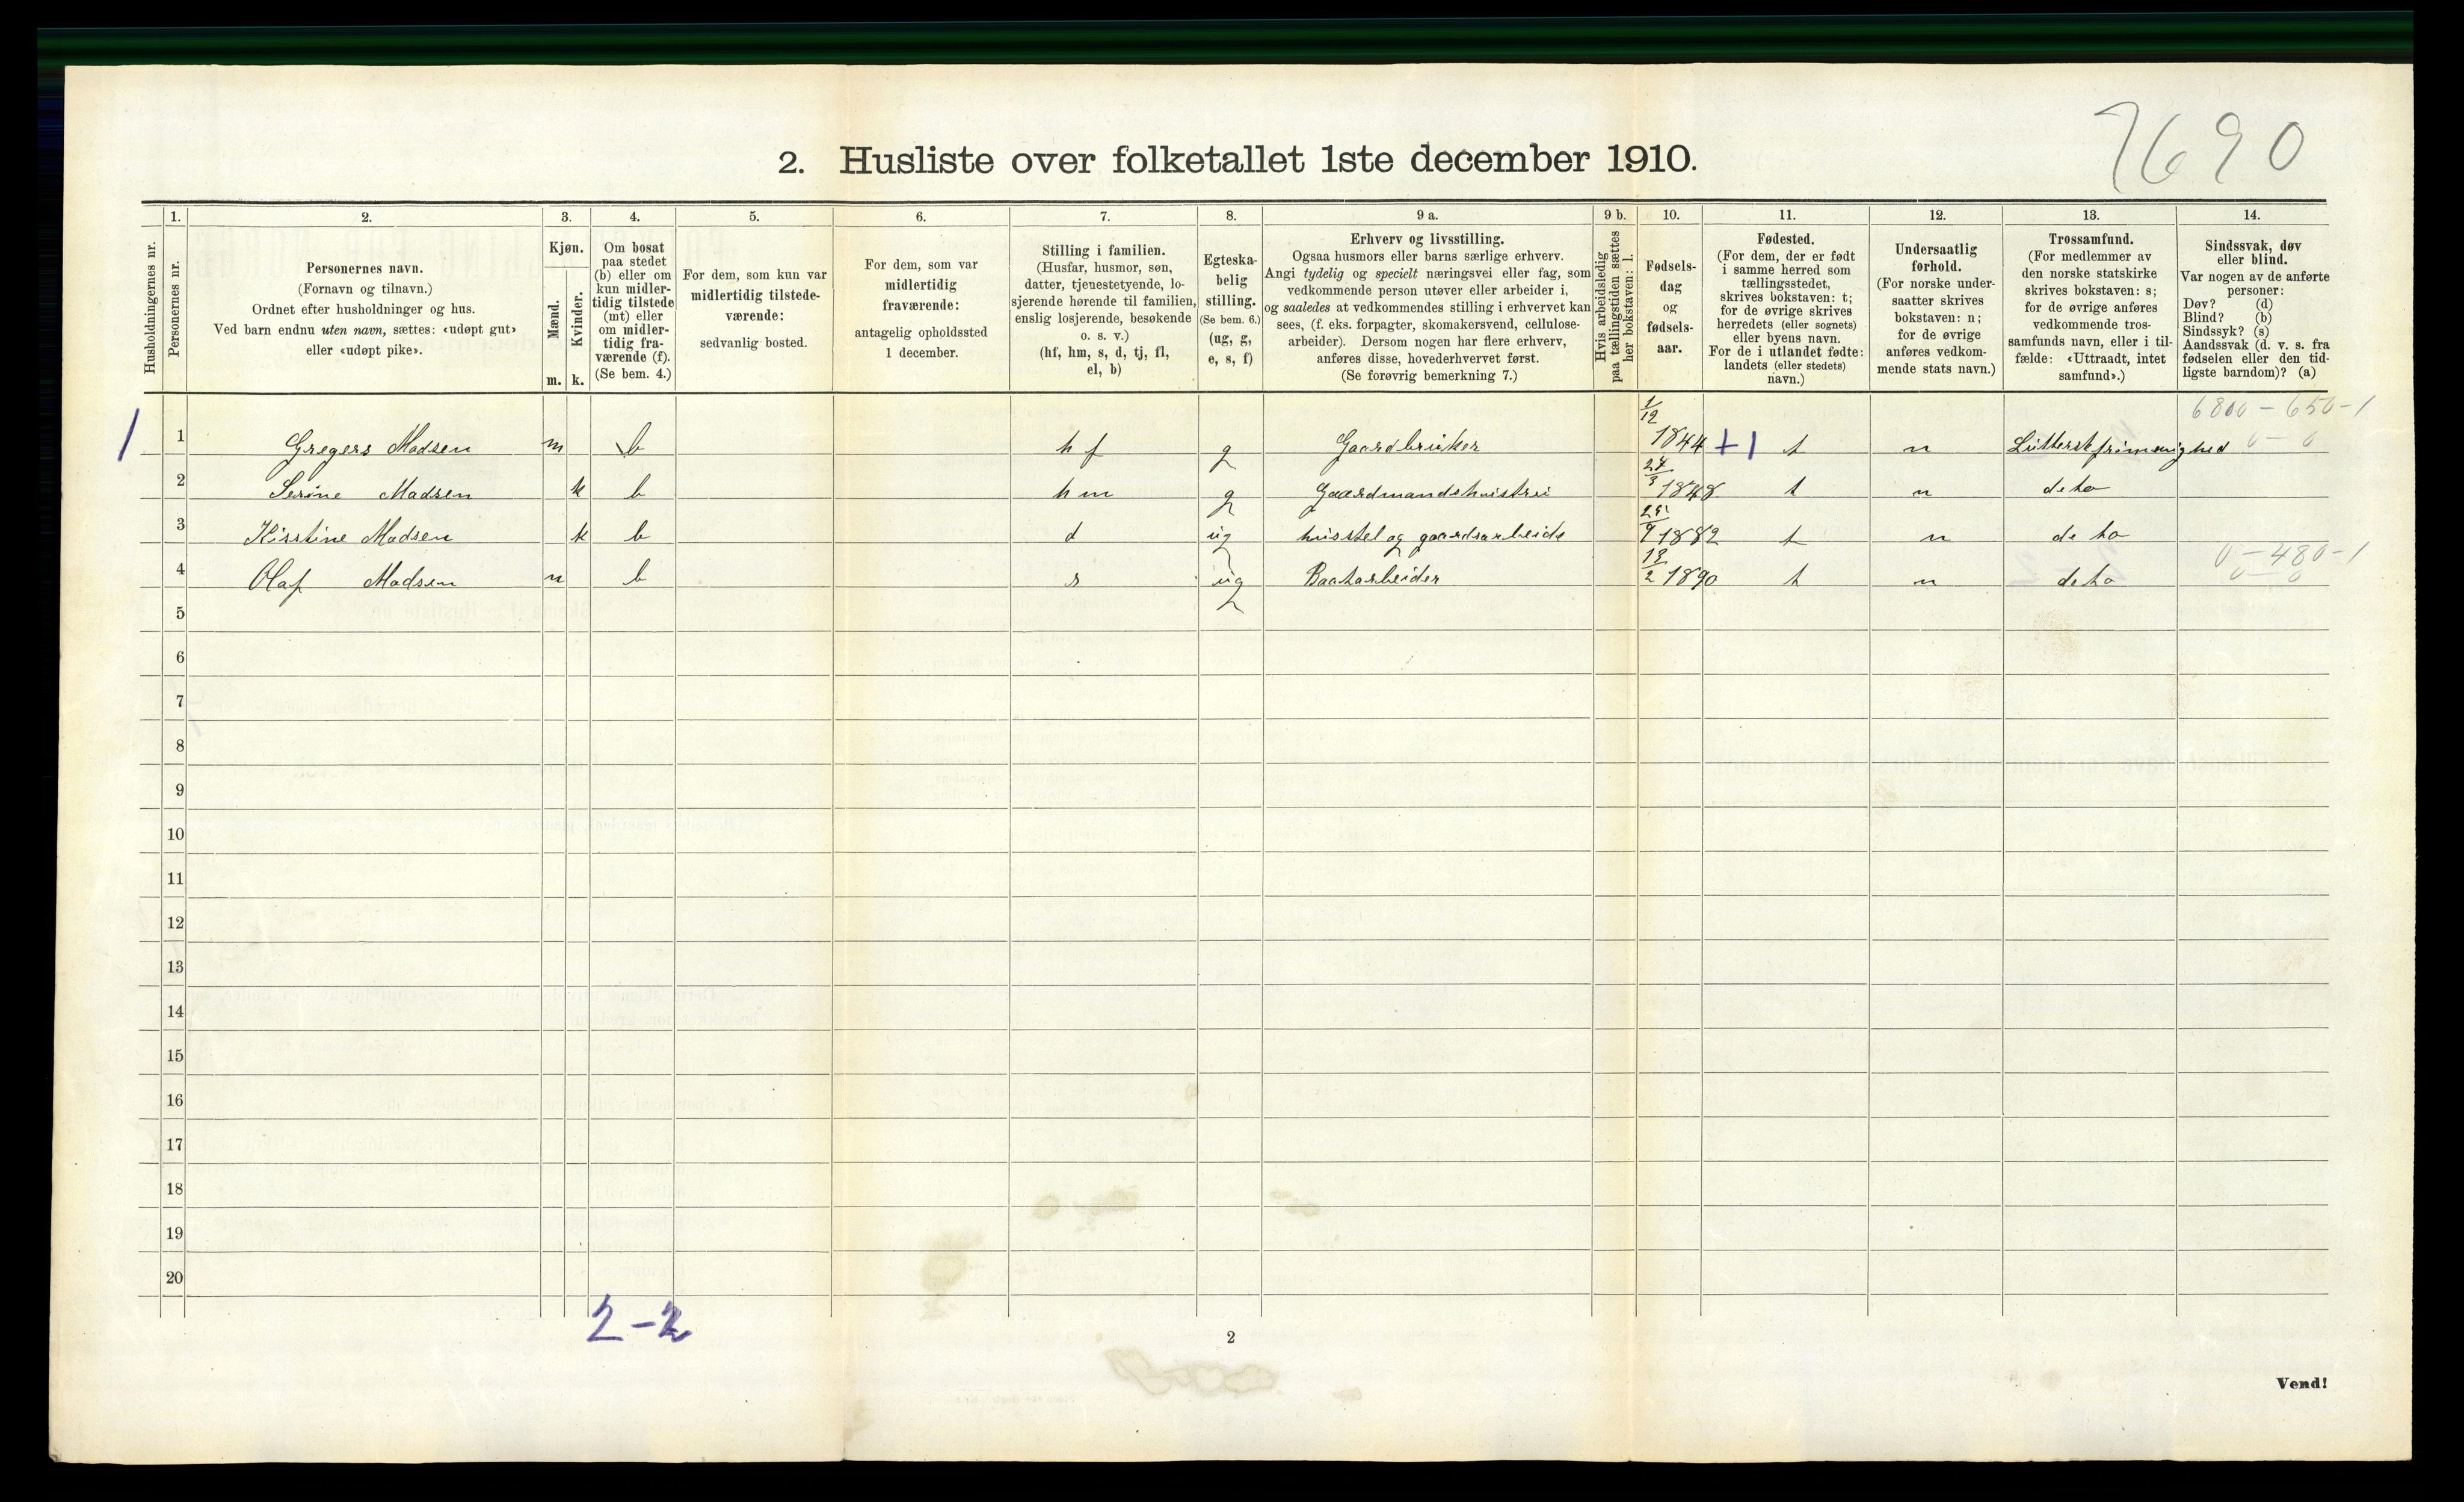 7690
2. Husliste over folketallet 1ste december 1910.
Husholdningernes nr.
1. 2. 3. 4. 5. 6. 7. 8. 9 a. 9 b. 10. 11. 12. 13. 14.
Personernes nr.
Personernes navn.
(Fornavn og tilnavn.)
Ordnet efter husholdninger og hus.
Ved barn endnu uten navn, sættes: «udøpt gut»
eller «udøpt pike».
Kjøn.
Mænd.
Kvinder.
m. k.
Om bosat
paa stedet
(b) eller om
kun midler-
tidig tilstede
(mt) eller
om midler-
tidig fra-
værende (f).
(Se bem. 4.)
For dem, som kun var
midlertidig tilstede-
værende:
sedvanlig bosted.
For dem, som var
midlertidig
fraværende:
antagelig opholdssted
1 december.
Stilling i familien.
(Husfar, husmor, søn,
datter, tjenestetyende, lo-
sjerende hørende til familien,
enslig losjerende, besøkende
o. s. v.)
(hf, hm, s, d, tj, fl,
el, b)
Egteska-
belig
stilling.
(Se bem. 6.)
(ug, g,
e, s, f)
Erhverv og livsstilling.
Ogsaa husmors eller barns særlige erhverv.
Angi tydelig og specielt næringsvei eller fag, som
vedkommende person utøver eller arbeider i,
og saaledes at vedkommendes stilling i erhvervet kan
sees, (f. eks. forpagter, skomakersvend, cellulose-
arbeider). Dersom nogen har flere erhverv,
anføres disse, hovederhvervet først.
(Se forøvrig bemerkning 7.)
Hvis arbeidsledig
paa tællingstiden sættes
her bokstaven: l.
Fødsels-
dag
og
fødsels-
aar.
Fødested.
(For dem, der er født
i samme herred som
tællingsstedet,
skrives bokstaven: t;
for de øvrige skrives
herredets (eller sognets)
eller byens navn.
For de i utlandet fødte:
landets (eller stedets)
navn.)
Undersaatlig
forhold.
(For norske under-
saatter skrives
bokstaven: n;
for de øvrige
anføres vedkom-
mende stats navn.)
Trossamfund.
(For medlemmer av
den norske statskirke
skrives bokstaven: s;
for de øvrige anføres
vedkommende tros-
samfunds navn, eller i til-
fælde: «Uttraadt, intet
samfund».)
Sindssvak, døv
eller blind.
Var nogen av de anførte
personer:
Døv? (d)
Blind? (b)
Sindssyk? (s)
Aandssvak (d. v. s. fra
fødselen eller den tid-
ligste barndom)? (a)
6800 - 650 - 1
1 1 Gregers Madsen m b hf g Gaardbruker 1/12 1844 +1 t n 0 - 0
2 Serine Madsen k b hm g Gaardmandshustrei 27/3 1848 t n deto
3 Kisstine Madsen k b d ug husstel og gaardsarbeide 1882 t n deto
0 - 480 - 1
4 Olaf Madsen m b s ug Baatarbeider 1890 t n deto 0 - 0
5
6
7
8
9
10
11
12
13
14
15
16
17
18
19
20
2 - 2
2
Vend!